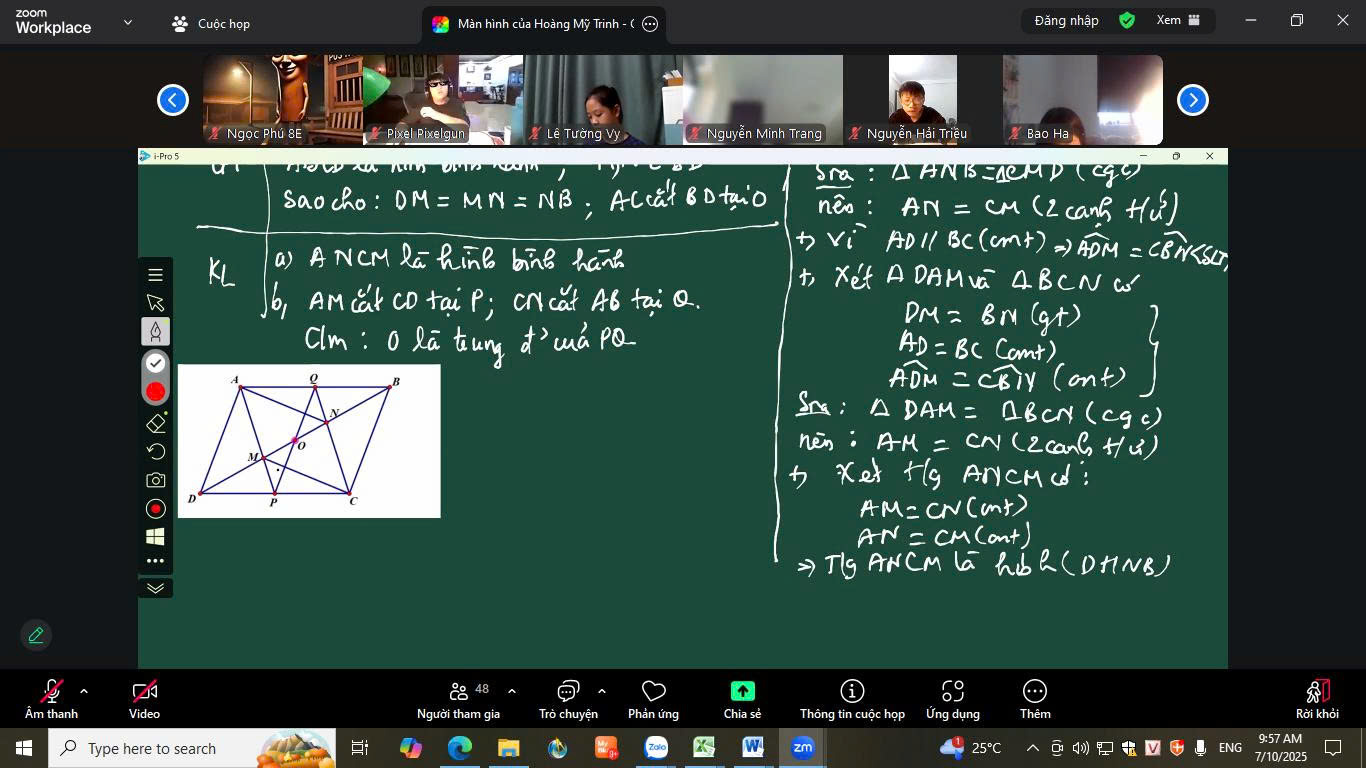 zoom
Workplace
Cuộc họp
Màn hình của Hoàng Mỹ Trinh - (
Đăng nhập
Xem
Ngọc Phú 8E
Pixel Pixelgun
Lê Tường Vy
Nguyễn Minh Trang
Nguyễn Hải Triều
Bao Ha
i-Pro 5
ABCD là hình bình hành ;
Sao cho : DM = MN = NB ; AC cắt BD tại O
KL
a) ANCM là hình bình hành
b, AM cắt CD tại P ; CN cắt AB tại Q.
C/m : O là trung đ' của PQ
A
Q
B
N
O
M
D
P
C
Sra : Δ ANB = ΔCMD (cgc)
nên : AN = CM (2 cạnh t/ứ)
+, Vì AD // BC (cmt) => ADM = CBN (SLT)
+, Xét Δ DAM và Δ BCN có
DM = BN (gt)
AD = BC (cmt)
ADM = CBN (cmt)
Sra : Δ DAM = ΔBCN (cgc)
nên : AM = CN (2 cạnh t/ứ)
+, Xét T/g ANCM có :
AM = CN (cmt)
AN = CM (cmt)
=> T/g ANCM là hbh (DHNB)
Âm thanh
Video
48
Người tham gia
Trò chuyện
Phản ứng
Chia sẻ
Thông tin cuộc họp
Ứng dụng
Thêm
Rời khỏi
Type here to search
zm
25°C
ENG
9:57 AM
7/10/2025